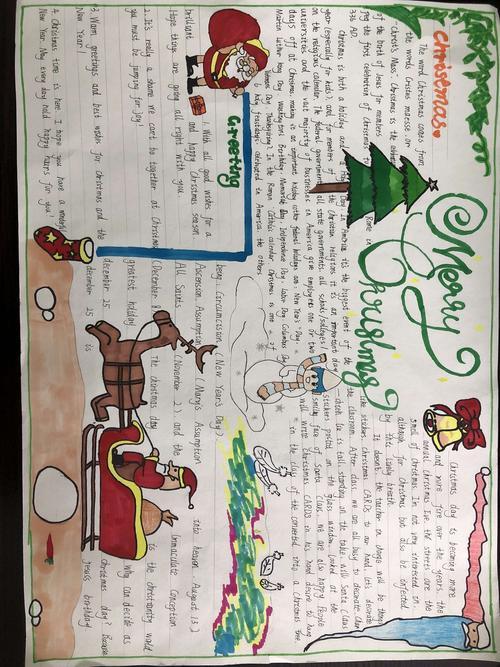 christmas
Merry
Christmas
The word Christmas comes from
the words Cristes maesse or
"Christ's Mass" Christmas is the
of the birth of Jesus for members
the first celebration of Christmas to
Rome in
336 AD.
Christmas is both a holiday and a Holy Day In America it's the biggest event of the
year (especially for kids) and for members of the Christian religions it is an important day
on the religious calendar The federal government all state governments all schools/
universities and the vast majority of businesses America give employees one or two
days off at Christmas making it an important holiday other federal holidays are New Year's Day
Martin Luther King Day Washington's Birthday Memorial Day Independence Day Labor Day Columbus Day
Veterans Day Thanksgiving In the Roman Catholic calendar Christmas is one of
6 holy holidays celebrated in America the others
Circumcision (New Year's Day)
Ascension Assumption (Mary's Assumption into heaven August 15)
All Saints (November 2) and the Immaculate Conception
(December The Christmas day is the christianity world
greatest holiday Why can decide as
december 25 Christmas day? Because
december 25 is Jesus birthday
Greeting
1. With all good wishes for a
brilliant and happy Christmas season
Hope things are going all right with you
2. It's really a shame we can't be together at Christmas
you must be jumping for joy
3. Warm greetings and best wishes for Christmas and the
New Year!
4. Christmas time is here I hope you have a wonderful
New Year May every day hold happy hours for you!
Christmas day is becoming more
and more fire over the years, the
annual Christmas Eve the streets are the
smell of Christmas In not very interested in
although for Christmas but also be infected
by the
the teacher in charge will be
stickers Christmas CARDS to our hand let's decorate
the classroom After class we are all busy to decorate
is tall standing on the table will Santa Claus
stickers posted on the glass window looked at the
smiling face of Santa Claus we are also happy People
will write Christmas CARDS in his hand desire to hang
in the class of the converted into a Christmas tree